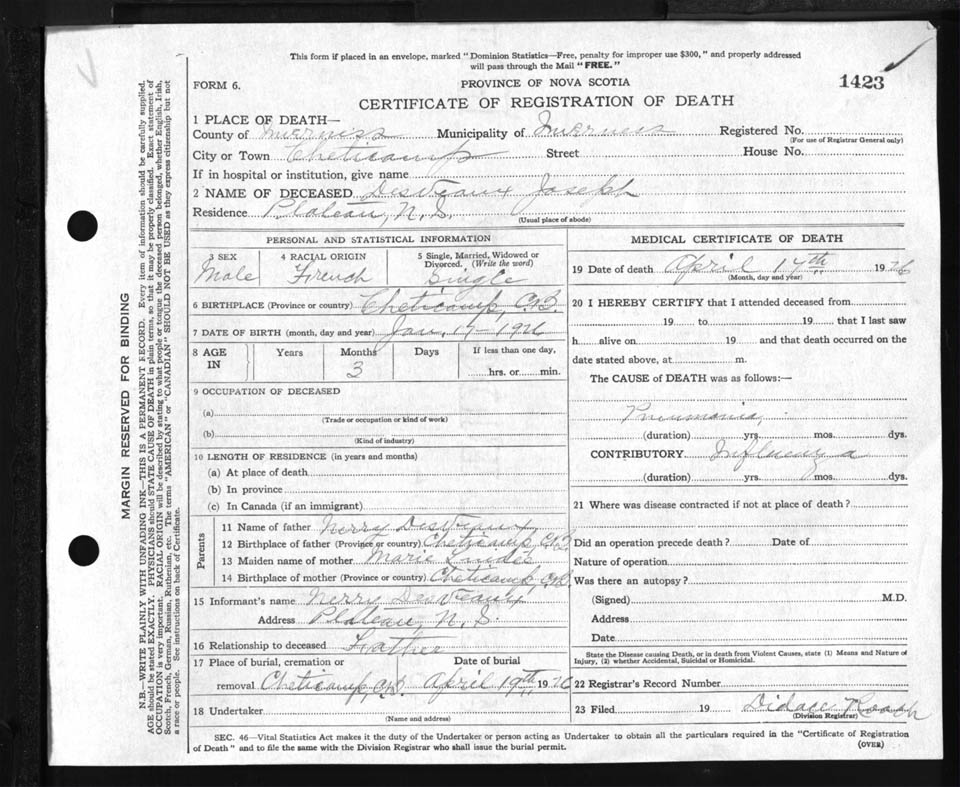 This form if placed in an envelope, marked "Dominion Statistics—Free, penalty for improper use $300," and properly addressed
will pass through the Mail "FREE."
FORM 6.
PROVINCE OF NOVA SCOTIA
1423
CERTIFICATE OF REGISTRATION OF DEATH
1 PLACE OF DEATH—
County of Inverness Municipality of Inverness Registered No.
(For use of Registrar General only)
City or Town Cheticamp Street House No.
If in hospital or institution, give name
2 NAME OF DECEASED DesVeaux Joseph
Residence Plateau, N.S. (Usual place of abode)
PERSONAL AND STATISTICAL INFORMATION
3 SEX
Male
4 RACIAL ORIGIN
French
5 Single, Married, Widowed or
Divorced. (Write the word)
Single
6 BIRTHPLACE (Province or country) Cheticamp, C.B.
7 DATE OF BIRTH (month, day and year) Jan. 17-1926
8 AGE
IN
Years
Months
3
Days
If less than one day,
hrs. or min.
9 OCCUPATION OF DECEASED
(a)
(Trade or occupation or kind of work)
(b)
(Kind of industry)
10 LENGTH OF RESIDENCE (in years and months)
(a) At place of death
(b) In province
(c) In Canada (if an immigrant)
Parents
11 Name of father DesVeaux
12 Birthplace of father (Province or country) Cheticamp, C.B.
13 Maiden name of mother Marie
14 Birthplace of mother (Province or country) Cheticamp, C.B.
15 Informant's name DesVeaux
Address Plateau, N.S.
16 Relationship to deceased Father
17 Place of burial, cremation or Date of burial
removal Cheticamp, C.B. April 19th, 1926
18 Undertaker
(Name and address)
MEDICAL CERTIFICATE OF DEATH
19 Date of death April 17th 1926
(Month, day and year)
20 I HEREBY CERTIFY that I attended deceased from
19 to 19 that I last saw
h alive on 19 and that death occurred on the
date stated above, at m.
The CAUSE of DEATH was as follows:—
Pneumonia,
(duration) yrs. mos. dys.
CONTRIBUTORY Influenza
(duration) yrs. mos. dys.
21 Where was disease contracted if not at place of death?
Did an operation precede death? Date of
Nature of operation
Was there an autopsy?
(Signed) M.D.
Address
Date
State the Disease causing Death, or in death from Violent Causes, state (1) Means and Nature of
Injury, (2) whether Accidental, Suicidal or Homicidal.
22 Registrar's Record Number
23 Filed 19 Didace Roach
(Division Registrar)
SEC. 46—Vital Statistics Act makes it the duty of the Undertaker or person acting as Undertaker to obtain all the particulars required in the "Certificate of Registration
of Death" and to file the same with the Division Registrar who shall issue the burial permit.
(OVER)
MARGIN RESERVED FOR BINDING
N.B.—WRITE PLAINLY WITH UNFADING INK—THIS IS A PERMANENT RECORD. Every item of information should be carefully supplied.
AGE should be stated EXACTLY. PHYSICIANS should STATE CAUSE OF DEATH in plain terms, so that it may be properly classified. Exact statement of
OCCUPATION is very important. RACIAL ORIGIN will be described by stating to what people or tongue the deceased person belonged, whether English, Irish,
Scotch, French, German, Russian, Ruthenian, etc. The terms "AMERICAN" or "CANADIAN" SHOULD NOT BE USED as they express citizenship but not
a race or people. See instructions on back of Certificate.